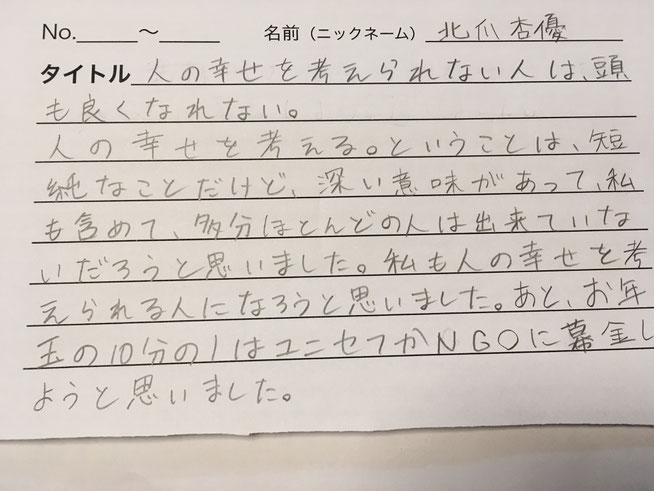 No.____～____ 名前（ニックネーム） 北爪杏優
タイトル 人の幸せを考えられない人は、頭
も良くなれない。
人の幸せを考える。ということは、短
純なことだけど、深い意味があって、私
も含めて、多分ほとんどの人は出来ていな
いだろうと思いました。私も人の幸せを考
えられる人になろうと思いました。あと、お年
玉の10分の1はユニセフかNGOに募金し
ようと思いました。